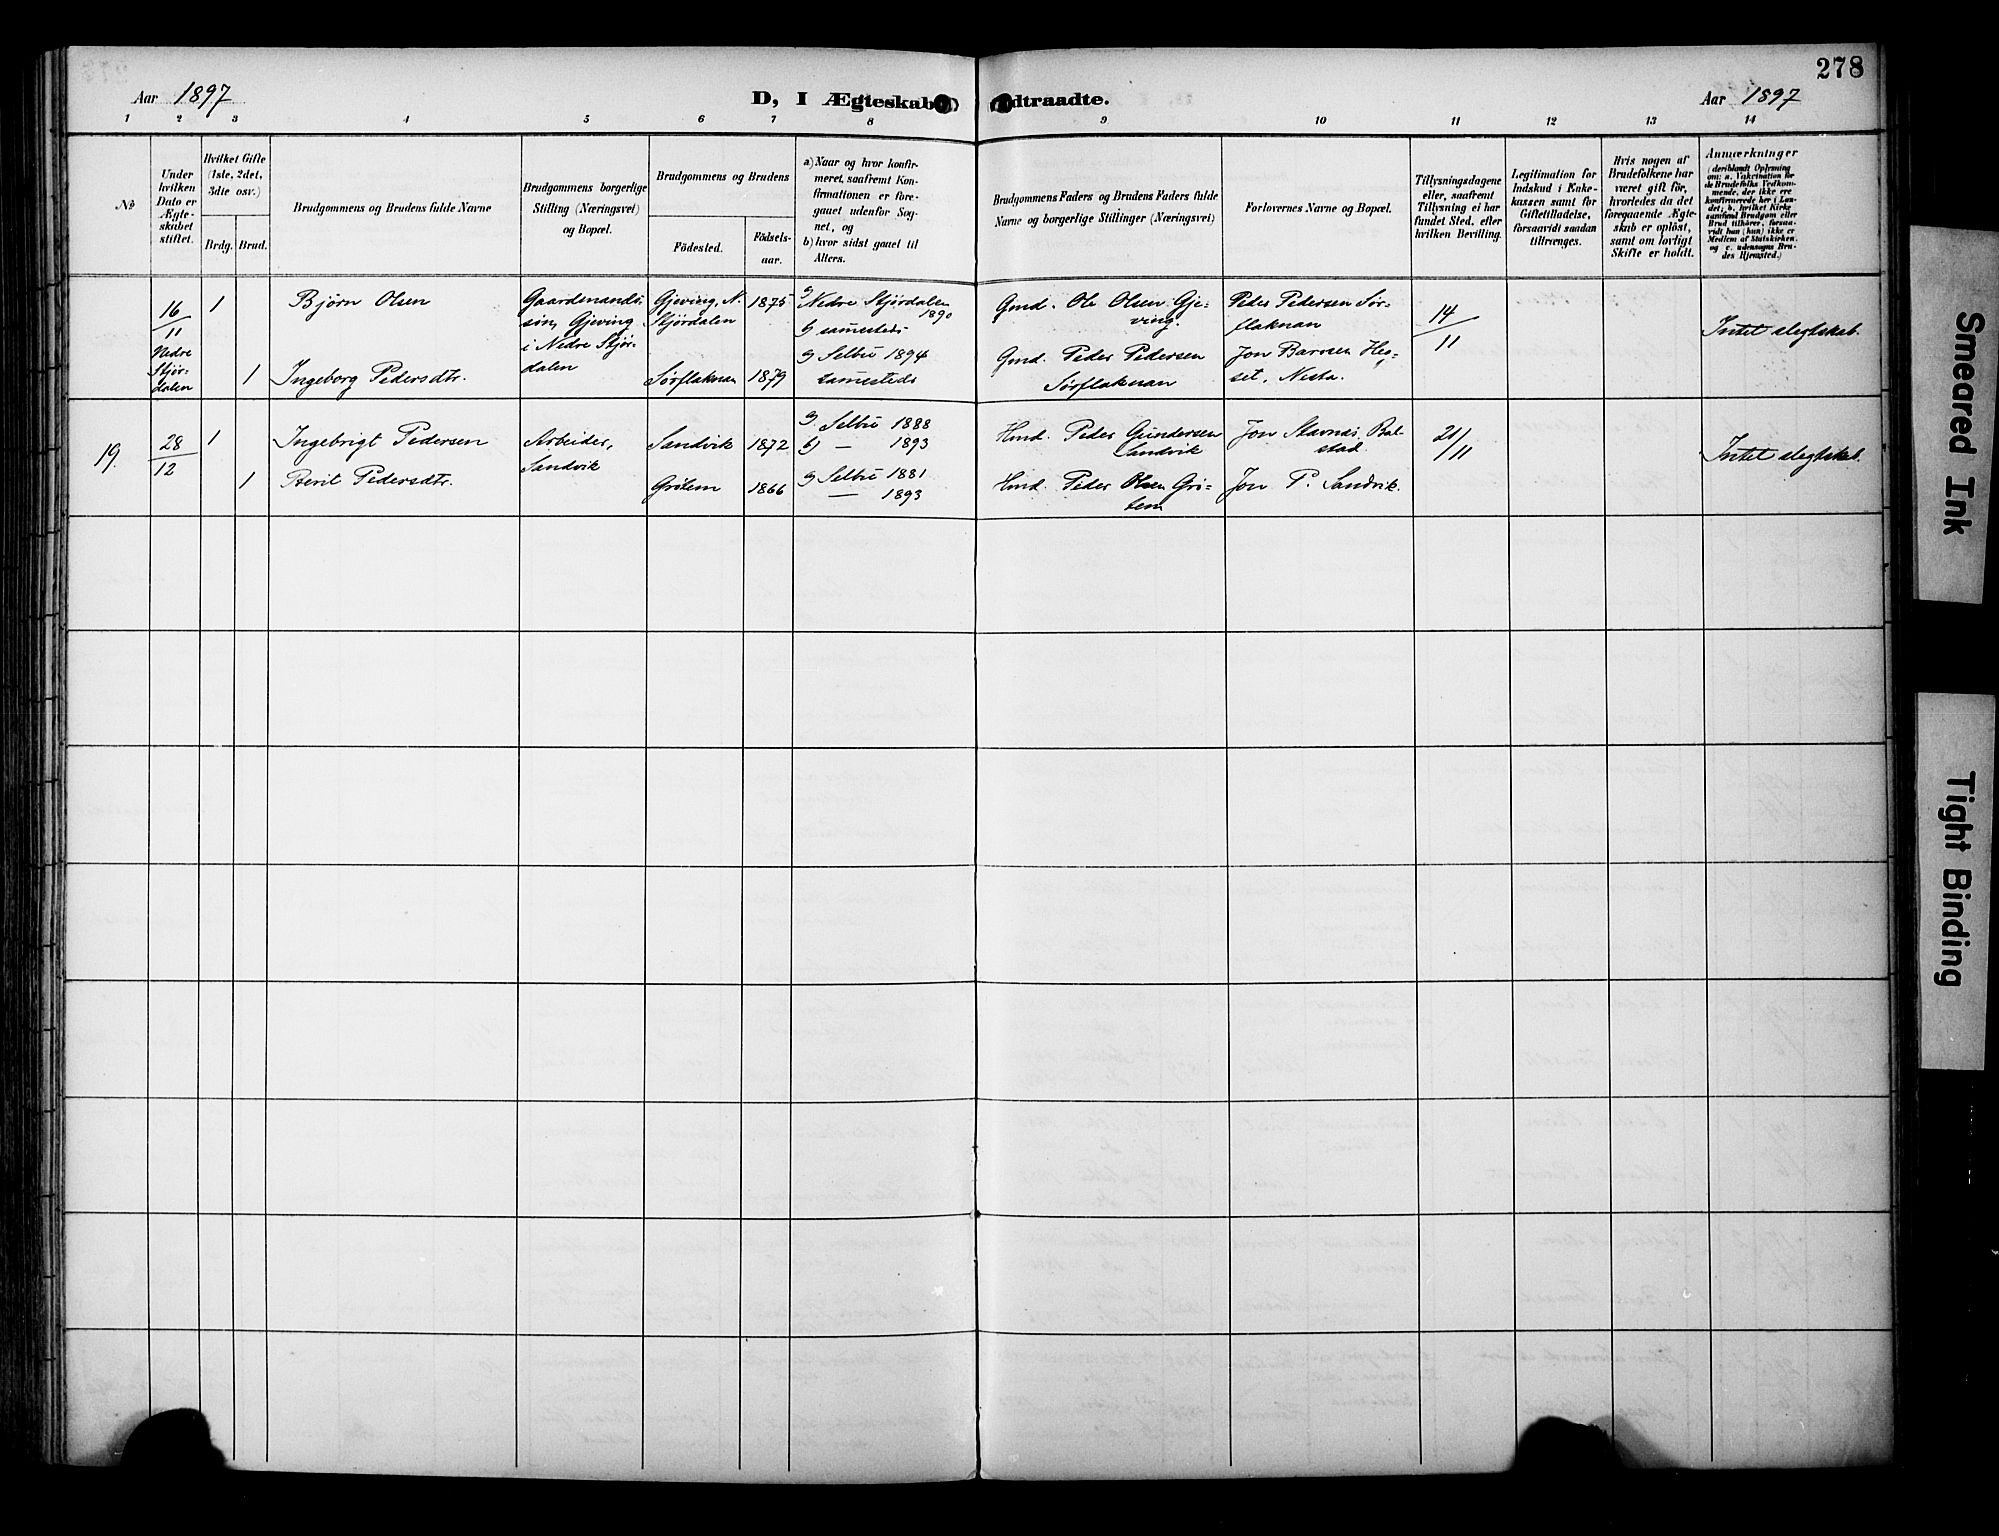 278
Aar 1897
D, I Ægteskab
dtraadte.
Aar 1897
1 2 3 4 5 6 7 8 9 10 11 12 13 14
No
Under hvilken Dato er Ægteskabet stiftet.
Hvilket Gifte (1ste, 2det, 3die osv.)
Brdg. Brud.
Brudgommens og Brudens fulde Navne
Brudgommens borgerlige Stilling (Næringsvei) og Bopæl.
Brudgommens og Brudens
Födested.
Födsels-aar.
a) Naar og hvor konfir-
meret, saafremt Kon-
firmationen er fore-
gaaet udenfor Sog-
net, og
b) hvor sidst gaaet til
Alters.
Brudgommens Faders og Brudens Faders fulde
Navne og borgerlige Stillinger (Næringsvei)
Forlovernes Navne og Bopæl.
Tillysningsdagene
eller, saafremt
Tillysning ei har
fundet Sted, efter
hvilken Bevilling.
Legitimation for
Indskud i Enke-
kassen samt for
Giftetilladelse,
forsaavidt saadan
tiltrænges.
Hvis nogen af
Brudefolkene har
været gift för,
hvorledes da det
foregaaende Ægte-
skab er oplöst,
samt om lovligt
Skifte er holdt.
Anmærkninger
(deriblandt Oplysning
om: a. Vakcination for
de Brudefolks Vedkom-
mende, der ikke ere
konfirmerede her i Lan-
det; b. hvilket Kirke-
samfund Brudgom eller
Brud tilhörer, forsaa-
vidt han (hun) ikke er
Medlem af Statskirken,
og c. udensogns Bru-
des Hjemsted.)
16/11
Nedre
Stjör-
dalen
1
Bjørn Olsen
Gaardmands-
søn, Gjeving
i Nedre Stjør-
dalen
Gjeving, N.
Stjördalen
1875
a) Nedre Stjördalen
1890
b) samesteds
Gmd. Ole Olsen Gje-
ving.
Peder Pedersen Sør-
flaknan
14/11
Intet slegtskab.
1
Ingeborg Pedersdtr.
Sørflaknan
1879
a) Selbu 1894
samesteds
Gmd. Peder Pedersen
Sørflaknan
Jon Barosen Hes-
set, Nesta.
19.
28/12
1
Ingebrigt Pedersen
Arbeider,
Sandvik
Sandvik
1872
a) Selbu 1888
b) — 1893
Hmd. Peder Gundersen
Sandvik
Jon Stavnås, Bal-
stad.
21/11
Intet slegtskab.
1
Berit Pedersdtr.
Grötem
1866
a) Selbu 1881
— 1893
Hmd. Peder Olsen Grö-
tem
Jon P. Sandvik.
Smeared Ink
Tight Binding